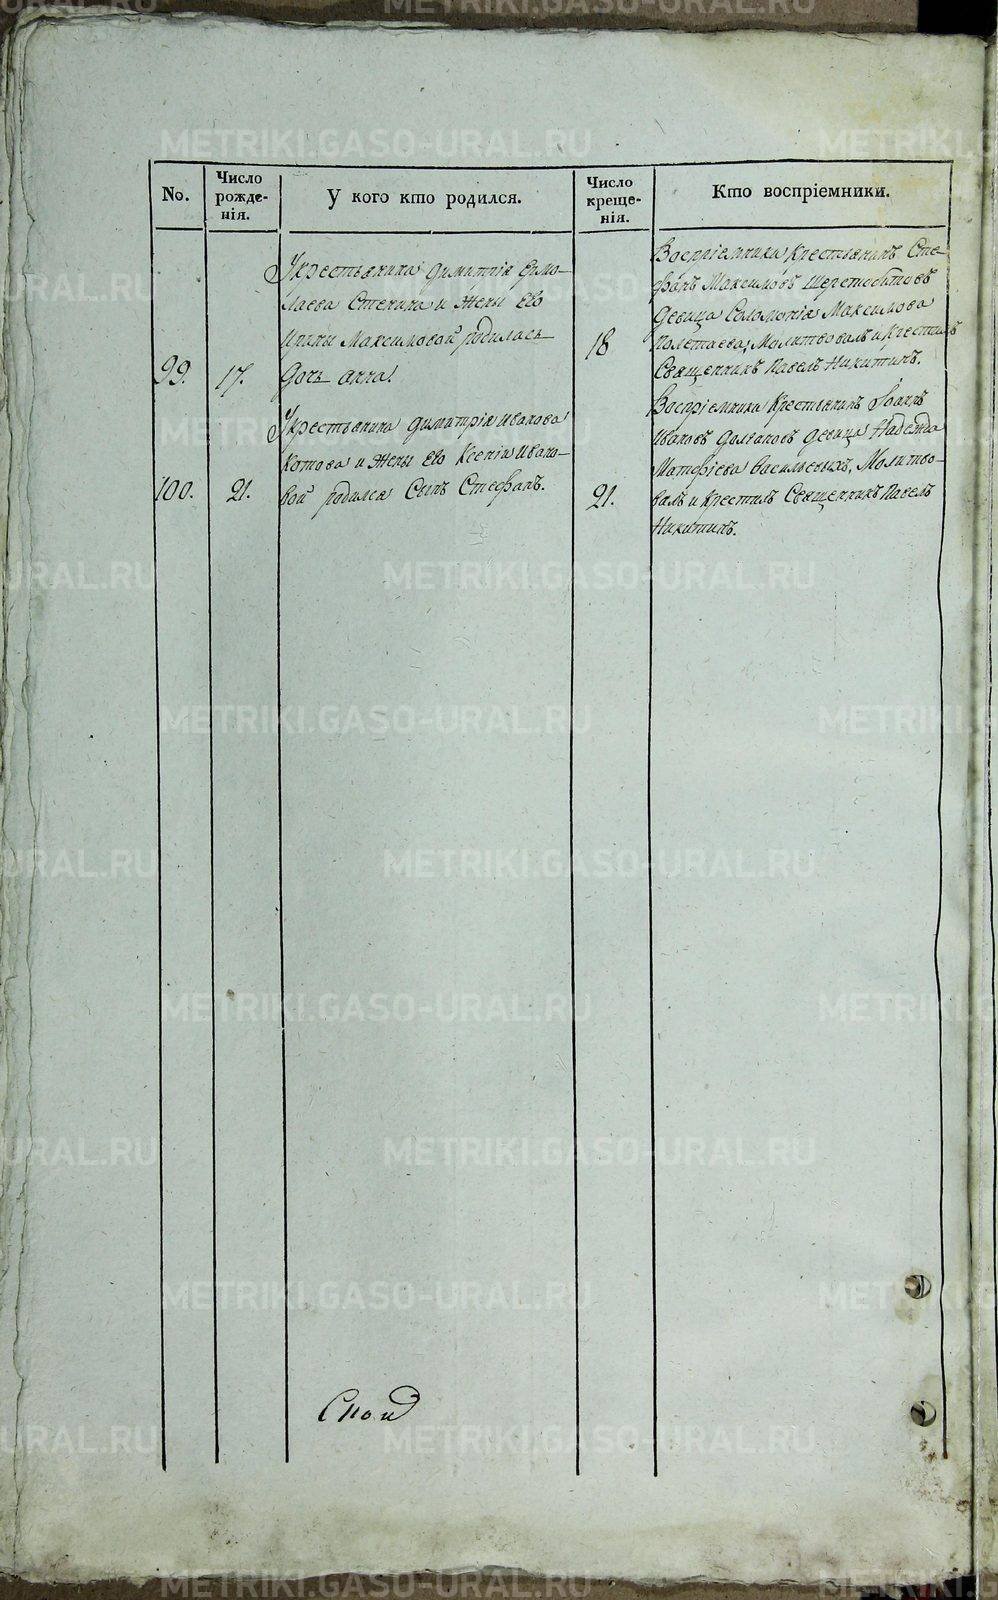 No.
Число
рожде-
нія.
У кого кто родился.
Число
креще-
нія.
Кто воспріемники.
99.
17.
Укрестьянина Димитрія Ермо-
лаева Степина и жены Ево
Ирины Максимовой родилась
Дочь анна.
18
Воспріемники крестьянинъ Сте-
фанъ Максимовъ Шерстобитовъ
девица Соломонія Максимова
Полетаева, Молитвовалъ и крестилъ
Священникъ Павелъ Никитинъ.
100.
21.
Укрестьянина Димитрія иванова
Котова и жены Ево Ксеніи ивано-
вой родился Сынъ Стефанъ.
21.
Воспріемники крестьянинъ Іоаннъ
ивановъ девица Надежда
Матфіева Васильевыхъ, Молитво-
валъ и крестилъ Священникъ Павелъ
Никитинъ.
METRIKI.GASO-URAL.RU